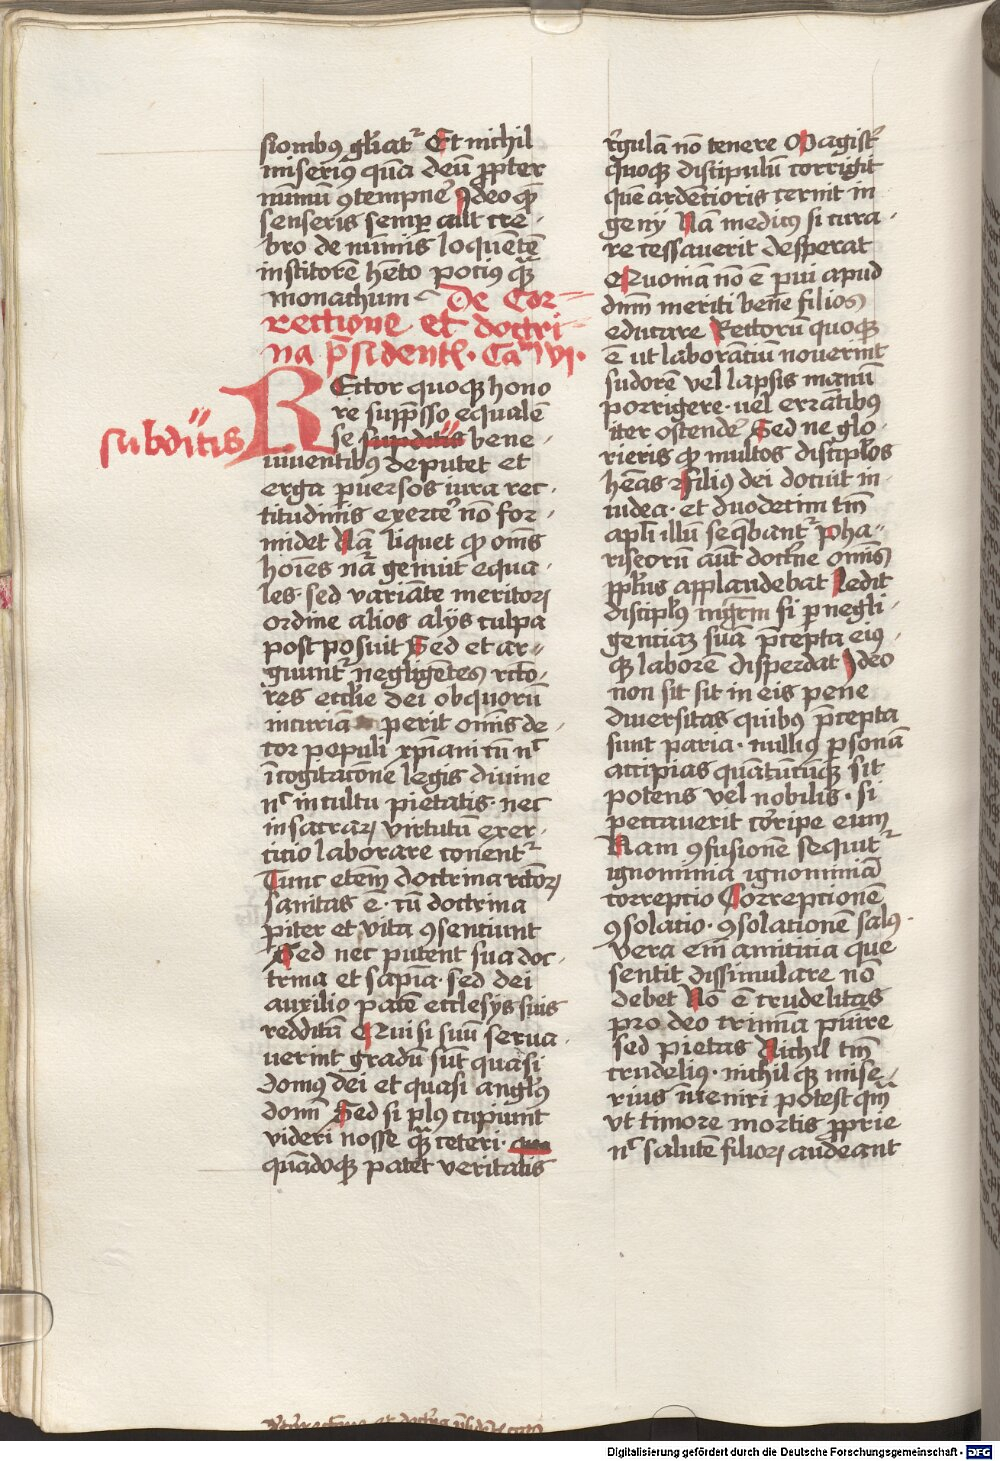 sionibus gliat᷑ Et nichil
miseriꝰ quā deū ꝓpter
nūmū ꝯtempne᷑ Ideo qd̄
senseris semꝑ aut cre-
bro de nūmis loquentē
institorē hēto potiꝰ qᷓꝫ
monachum De Cor-
rectione et doctri-
na p̄sidentꝭ. Cam̄ vj.
REctor quoqꝫ hono
re supp̄sso equalē
subditis
se supditis bene-
viventibꝰ deputet et
erga ꝑversos iura rec-
titudinis exerce᷑ nō for-
midet Nā liquet ꝙ oms̄
hoīes nāᷓ genuit equa-
les. sed variāte meritoꝝ
ordine alios alijs culpa
post posuit Sed et ar-
guunt᷑ negligentes rcto-
res ecclīe dei ob quorū
incuriā perit omīs de-
cor populi xp̄iani cū nᶜ
ī cogitacōne legis divine
nᶜ in cultu pietatis. nec
in sacraꝝ virtutū exer-
citio laborare conent᷑
Tunc etem̄ doctrina rctoꝝ
sanitas e. cū doctrina
ꝑiter et vita ꝯsentiunt
Sed nec putent sua doc-
trina et sapīa. sed dei
auxilio pacē ecclesijs suis
redditā Qui si suū serva-
verint gradū sūt quasi
domꝰ dei et quasi anglꝰs
domī Sed si plꝰ cupiunt
videri nosse qᷓꝫ ceteri.
quādoqꝫ patet veritatis
r᷑gulā nō tenere Magist᷑
quoqꝫ discipulū corrigit
quē ardencioris cernit in
genij Nā medicꝰ si cura-
re cessaverit desperat
Quoniā nō ē ꝑvi apud
dnm̄ meriti bene filios
educare Rectorū quoqꝫ
ē ut laborātiū noverint
sudorē vel lapsis manū
porrigere. vel errātibus
iter ostende᷑ Sed ne glo-
rieris ꝙ multos discipl̄os
hēas Filiꝰ dei docuit in
iudea. et duodecim tm̄
apl̄i illū seqᷓbant᷑ pha-
riseorū aūt doct᷑ne omīs
pplꝰs applaudebat ledit
disciplꝰs mgr̄m si ꝑ negli-
genciaꝫ suā p̄cepta eiꝰ-
qꝫ laborē disperdat Ideo
non sit sit in eis pene
diversitas quibꝰ p̄cepta
sunt paria. nulliꝰ ꝑsonā
accipias quātūcūqꝫ sit
potens vel nobilis. si
peccaverit cor᷑ipe eum
Nam ꝯfusionē sequit᷑
ignominia ignominiā
correptio Correptionē
ꝯsolatio. ꝯsolationē salꝰ.
Vera em̄ amicitia que
sentit dissimulare nō
debet Nō ē crudelitas
pro deo crimīa pūire
sed pietas Nichil tm̄
crudeliꝰ. nichil qꝫ mise-
rius īveniri potest qm̄
vt timore mortis ꝓprie
nᶜ salutē filioꝝ audeant
Digitalisierung gefördert durch die Deutsche Forschungsgemeinschaft - DFG